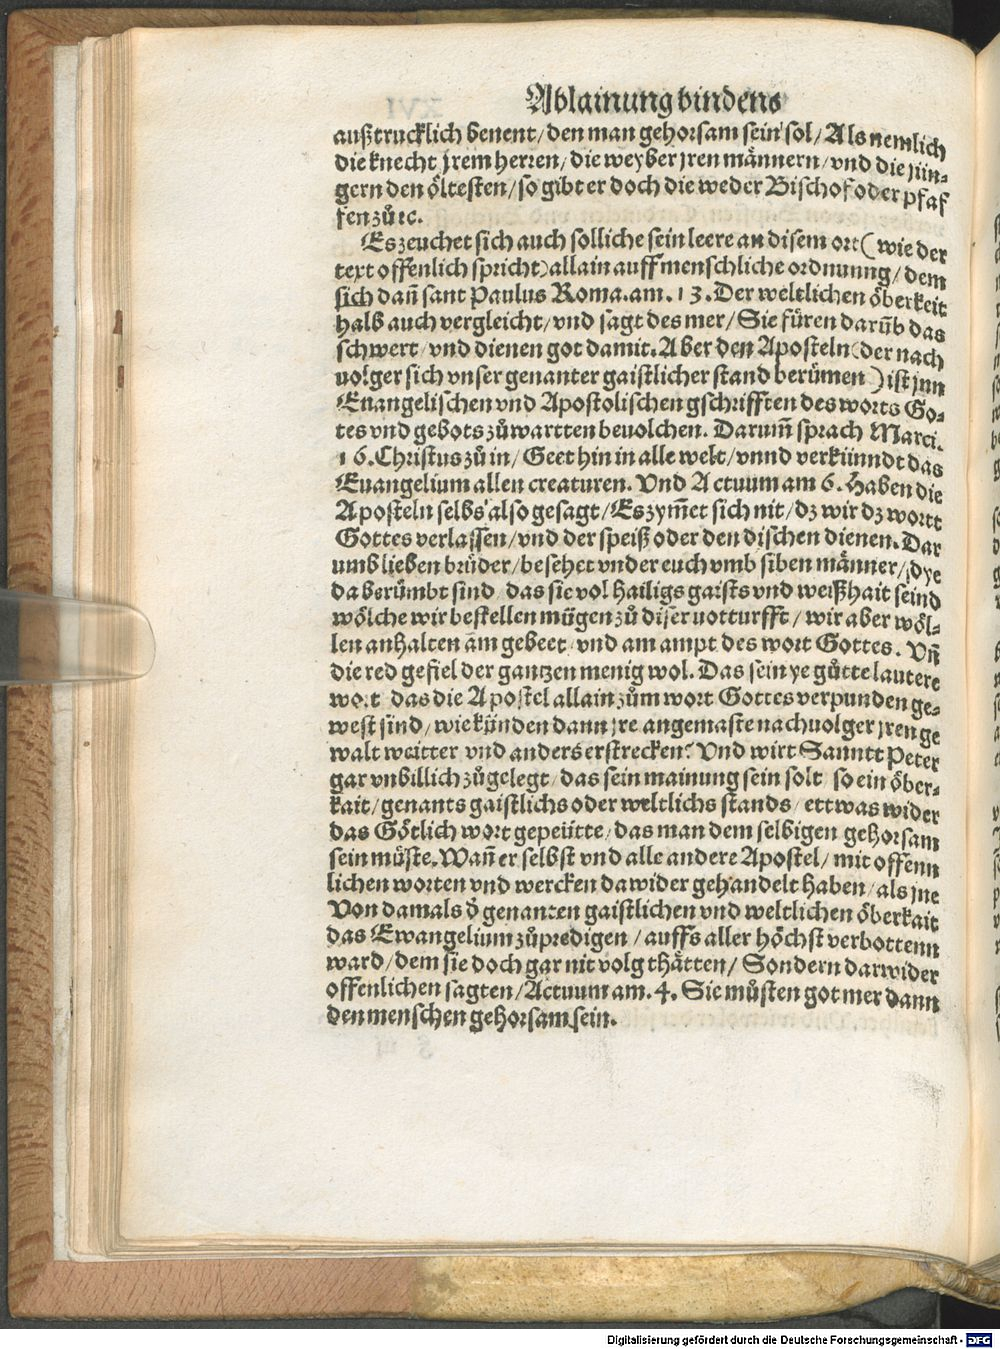 Ablainung bindens
außtrucklich benent/ den man gehorsam sein sol/ Als nemlich
die knecht jrem herren/ die weyber jren männern/ vnd die jün-
gern den öltesten/ so gibt er doch die weder Bischof oder pfaf
fen zůꝛc.
Es zeuchet sich auch solliche sein leere an disem ort (wie der
text offenlich spricht) allain auff menschliche ordnunng/ dem
sich dañ sant Paulus Roma. am. 13. Der weltlichen öberkeit
halb auch vergleicht/ vnd sagt des mer/ Sie füren darũb das
schwert/ vnd dienen got damit. Aber den Aposteln (der nach
uolger sich vnser genanter gaistlicher stand berümen) ist jnn
Euangelischen vnd Apostolischen gschrifften des worts Go-
tes vnd gebots zůwartten beuolchen. Darum̃ sprach Marci.
16. Christus zů in/ Geet hin in alle welt/ vnnd verkünndt das
Euangelium allen creaturen. Vnd Actuum am 6. Haben die
Aposteln selbs also gesagt/ Es zym̃et sich nit/ dz wir dz wortt
Gottes verlassen/ vnd der speiß oder den dischen dienen. Dar
umb lieben brüder/ besehet vnder euch vmb siben männer/ dye
da berümbt sind/ das sie vol hailigs gaists vnd weißhait seind
wölche wir bestellen mügen zů diser notturfft/ wir aber wöl-
len anhalten am gebeet/ vnd am ampt des wort Gottes. Vñ
die red gefiel der gantzen menig wol. Das sein ye gůtte lautere
wort/ das die Apostel allain zům wort Gottes verpunden ge-
west sind/ wie künden dann jre angemaste nachuolger jren ge
walt weitter vnd anders erstrecken? Vnd wirt Sanntt Peter
gar vnbillich zůgelegt/ das sein mainung sein solt/ so ein öber-
kait/ genants gaistlichs oder weltlichs stands/ ettwas wider
das Götlich wort gepeütte/ das man dem selbigen gehorsam
sein müste. Wañ er selbst vnd alle andere Apostel/ mit offenn
lichen worten vnd wercken dawider gehandelt haben/ als jne
Von damals d̕ genanten gaistlichen vnd weltlichen öberkait
das Ewangelium zůpredigen/ auffs aller höchst verbottenn
ward/ dem sie doch gar nit volg thätten/ Sondern darwider
offenlichen sagten/ Actuum am. 4. Sie můsten got mer dann
den menschen gehorsam sein.
Digitalisierung gefördert durch die Deutsche Forschungsgemeinschaft - DFG